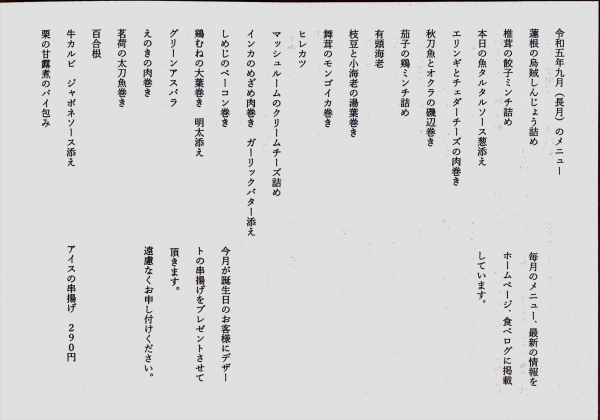 令和五年九月（長月）のメニュー
蓮根の烏賊しんじょう詰め
椎茸の餃子ミンチ詰め
本日の魚タルタルソース葱添え
エリンギとチェダーチーズの肉巻き
秋刀魚とオクラの磯辺巻き
茄子の鶏ミンチ詰め
有頭海老
枝豆と小海老の湯葉巻き
舞茸のモンゴイカ巻き
ヒレカツ
マッシュルームのクリームチーズ詰め
インカのめざめ肉巻き　ガーリックバター添え
しめじのベーコン巻き
鶏むねの大葉巻き　明太添え
グリーンアスパラ
えのきの肉巻き
茗荷の太刀魚巻き
百合根
牛カルビ　ジャポネソース添え
栗の甘露煮のパイ包み
毎月のメニュー、最新の情報を
ホームページ、食べログに掲載
しています。
今月が誕生日のお客様にデザー
トの串揚げをプレゼントさせて
頂きます。
遠慮なくお申し付けください。
アイスの串揚げ　２９０円